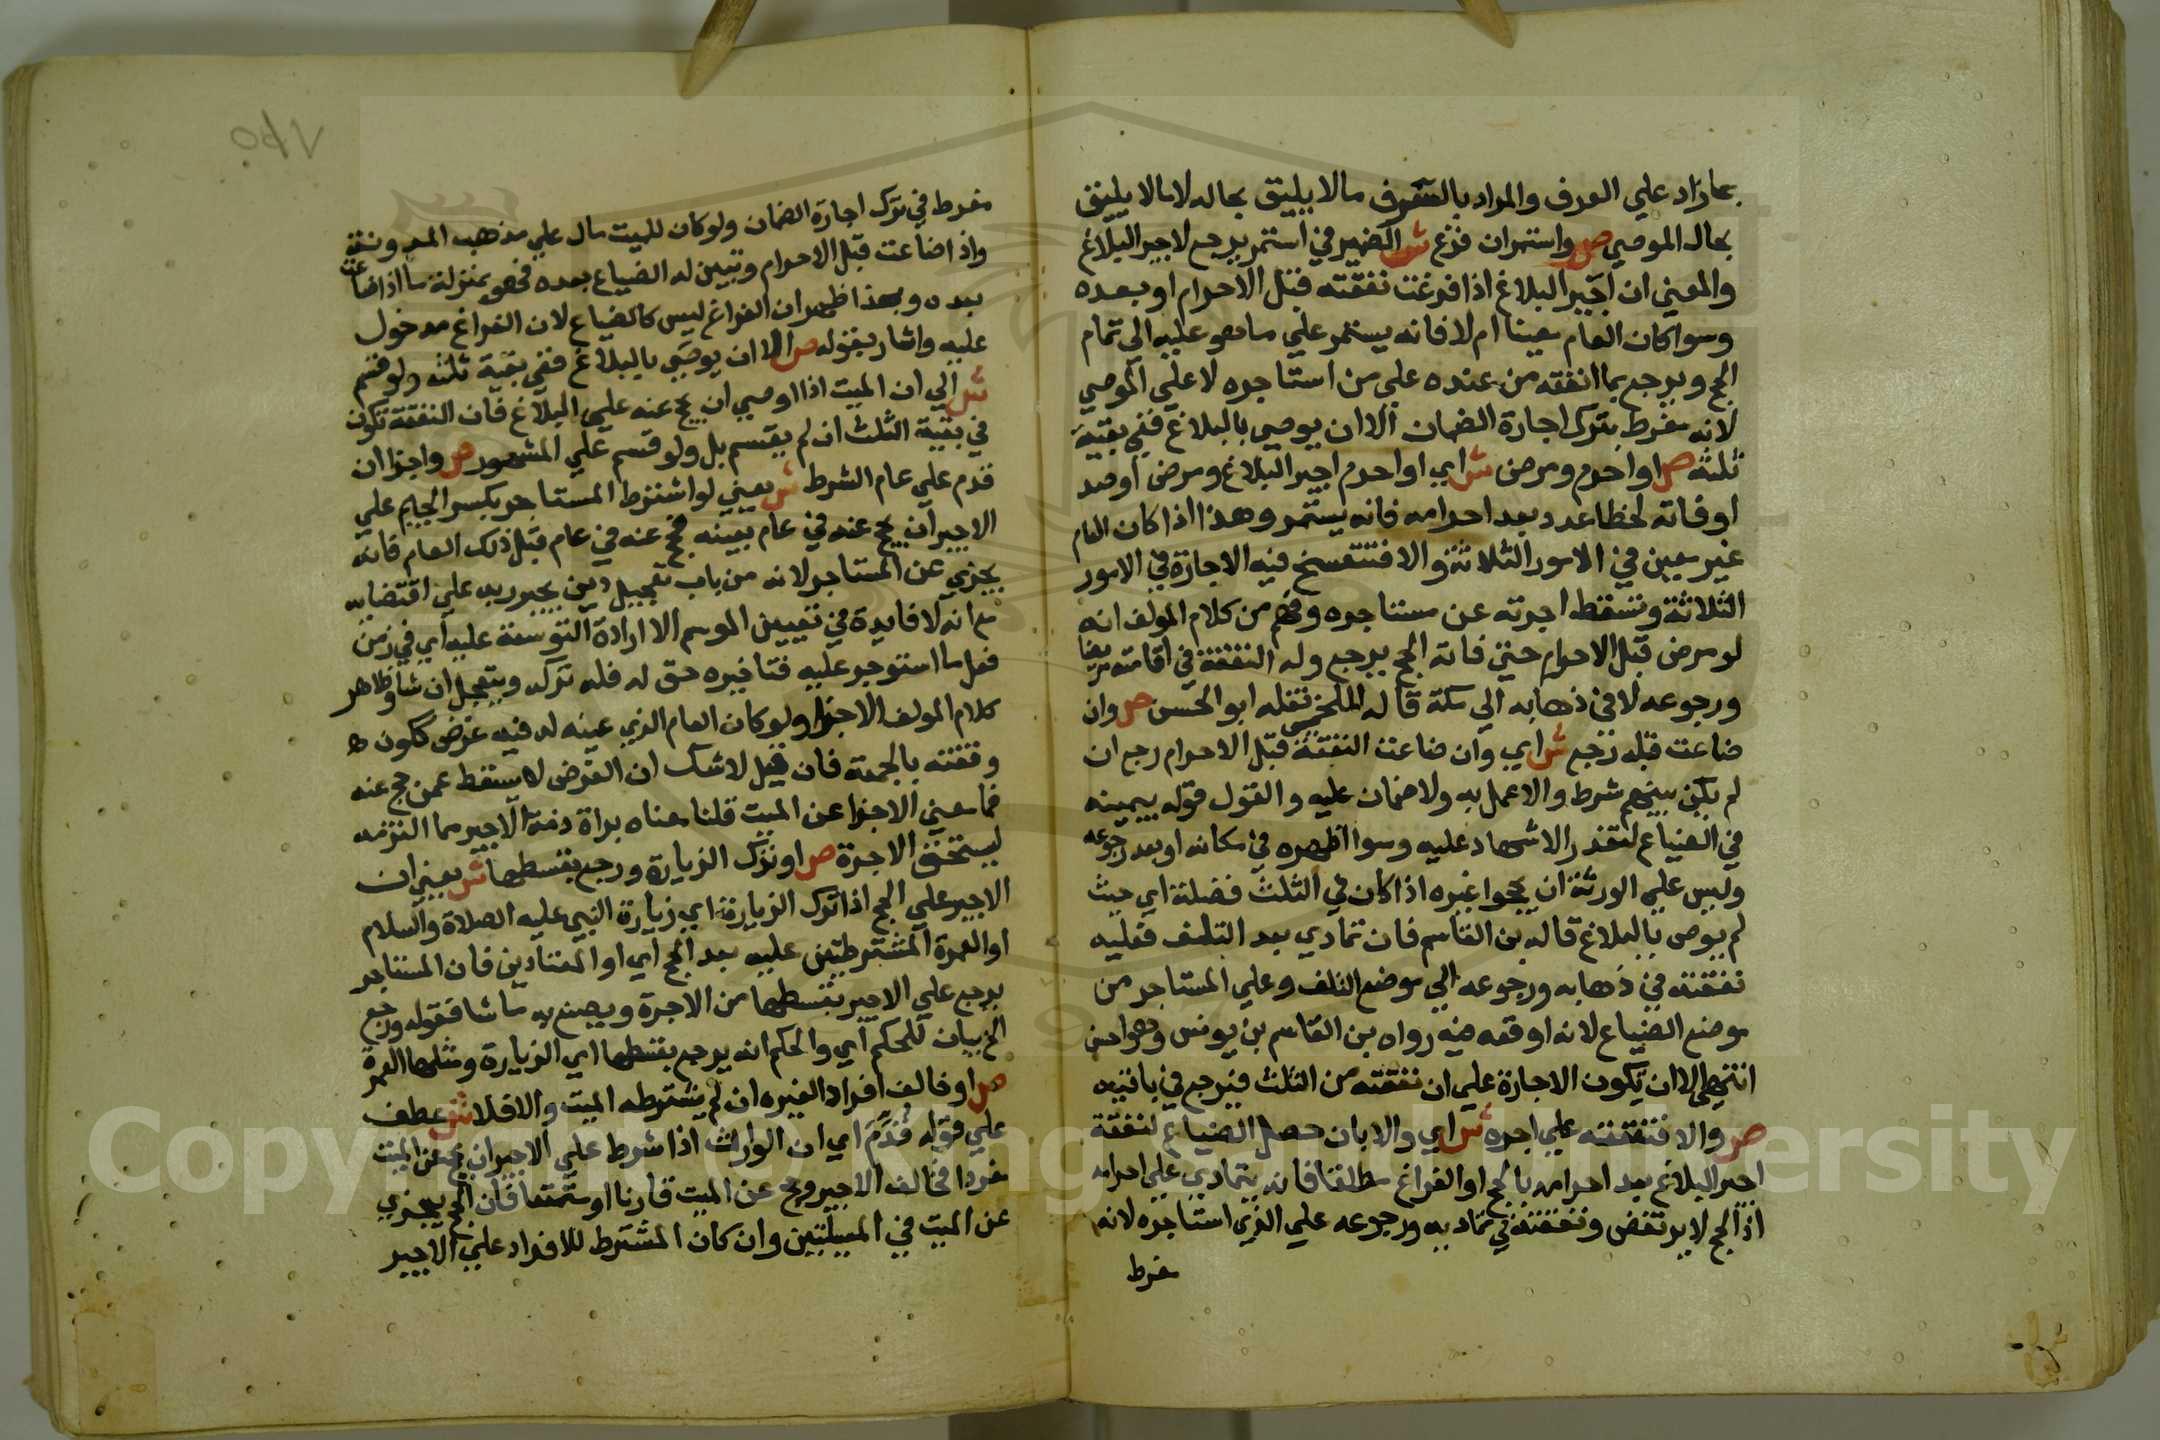 بما زاد علي العرف والمراد بالسرف مالا يليق بحاله لا بما لا يليق
بحال الموصي ص واستمران فرغ ش الضمير في استمر يرجع لاجير البلاغ
والمعني ان اجير البلاغ اذا فرغت نفقته قبل الاحرام او بعده
وسوا كان العام معينا ام لا فانه يستمر علي ما هو عليه الي تمام
الحج ويرجع بما انفقه من عنده علي من استاجره لا علي الموصي
لانه مفرط بترك اجارة الضمان الا ان يوصي بالبلاغ ففي بقية
ثلثه ص او احرم ومرض ش اي او احرم اجير البلاغ ومرض او صد
او فاته لخطا عدد بعد احرامه فانه يستمر وهذا اذا كان العام
غير معين في الامور الثلاثة والا فتنفسخ فيه الاجارة في الامور
الثلاثة وتسقط اجرته عن مستاجره وفهم من كلام المولف انه
لو مرض قبل الاحرام حتي فاته الحج يرجع وله النفقة في اقامته مريضا
ورجوعه لا في ذهابه الي مكة قاله اللخمي نقله ابو الحسن ص وان
ضاعت قبله رجع ش اي وان ضاعت النفقة قبل الاحرام رجع ان
لم يكن بينهم شرط والا عمل به ولا ضمان عليه والقول قوله بيمينه
في الضياع لتعذر الاشهاد عليه وسوا اظهره في مكانه او بعد رجوعه
وليس علي الورثة ان يحجوا غيره اذا كان في الثلث فضلة اي حيث
لم يوص بالبلاغ قاله بن القاسم فان تمادي بعد التلف فعليه
نفقته في ذهابه ورجوعه الي موضع التلف وعلي المستاجر من
موضع الضياع لانه اوقعه فيه رواه بن القاسم بن يونس وهو احسن
انتهي الا ان تكون الاجارة علي ان نفقته من الثلث فيرجع في باقيه
ص والا فنفقته علي اجره ش اي والا بان حصل الضياع لنفقة
اجير البلاغ بعد احرامه بالحج او الفراغ مطلقا فانه يتمادي علي احرامه
اذ الحج لا يرتفض ونفقته في تماديه ورجوعه علي الذي استاجره لانه
مفرط
مفرط في ترك اجارة الضمان ولو كان للميت مال علي مذهب المد ونفقة
واذا ضاعت قبل الاحرام وتبين له الضياع بعده فهو بمنزلة ما اذا ضاعت
بعده وبهذا ظهر ان الفراغ ليس كالضياع لان الفراغ مدخول
عليه واشار بقوله ص الا ان يوصي بالبلاغ ففي بقية ثلثه ولو قسم
ش الي ان الميت اذا اوصي ان يحج عنه علي البلاغ فان النفقة تكون
في بقية الثلث ان لم يقسم بل ولو قسم علي المشهور ص واجزا ان
قدم علي عام الشرط ش يعني لو اشترط المستاجر بكسر الجيم علي
الاجير ان يحج عنه في عام بعينه فحج عنه في عام قبل ذلك العام فانه
يجزي عن المستاجر لانه من باب تعجيل دين يجبر ربه علي اقتضايه
مع انه لا فايدة في تعيين الموسم الا ارادة التوسعة عليه اي في زمن
فعل ما استوجر عليه فتاخيره حق له فله تركه ويتعجل ان شا وظاهر
كلام المولف الاجزا ولو كان العام الذي عينه له فيه غرض ككون
وقفته بالجمعة فان قيل لاشك ان الفرض لا يسقط عمن حج عنه
فما معني الاجزا عن الميت قلنا معناه براة ذمة الاجير مما التزمه
ليستحق الاجرة ص او ترك الزيارة ورجع بقسطها ش يعني ان
الاجير علي الحج اذا ترك الزيارة اي زيارة النبي عليه الصلاة والسلام
او العمرة المشترطتين عليه بعد الحج اي او المعتادين فان المستاجر
يرجع علي الاجير بقسطها من الاجرة ويصنع به ما شا فقوله ورجع
الخ بيان للحكم اي والحكم انه يرجع بقسطها اي الزيارة ومثلها العمرة
ص او خالف افراد الغيره ان لم يشترطه الميت والا فلا ش عطف
علي قوله قدم اي ان الوارث اذا شرط علي الاجير ان يحج عن الميت
مفردا فخالف الاجير وحج عن الميت قارنا او متمتعا فان الحج يجزي
عن الميت في المسيلتين وان كان المشترط للافراد علي الاجير